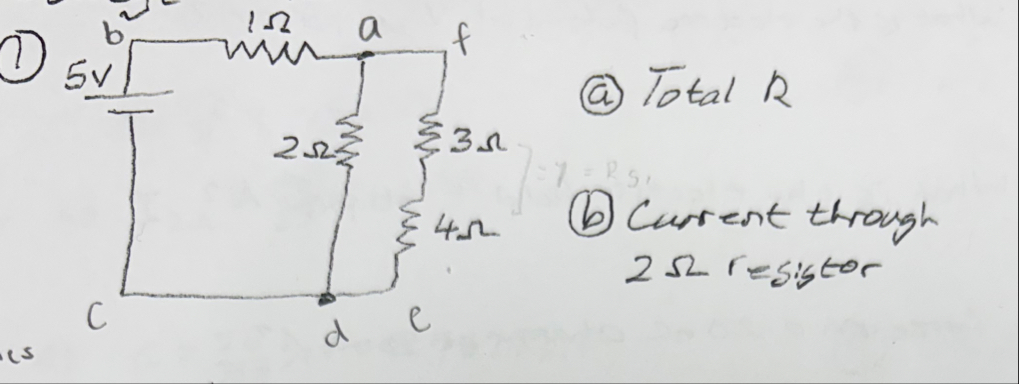 ①
b
1Ω
a
f
5V
2Ω
3Ω
4Ω
c
d
e
ⓐ Total R
ⓑ Current through
2Ω resistor